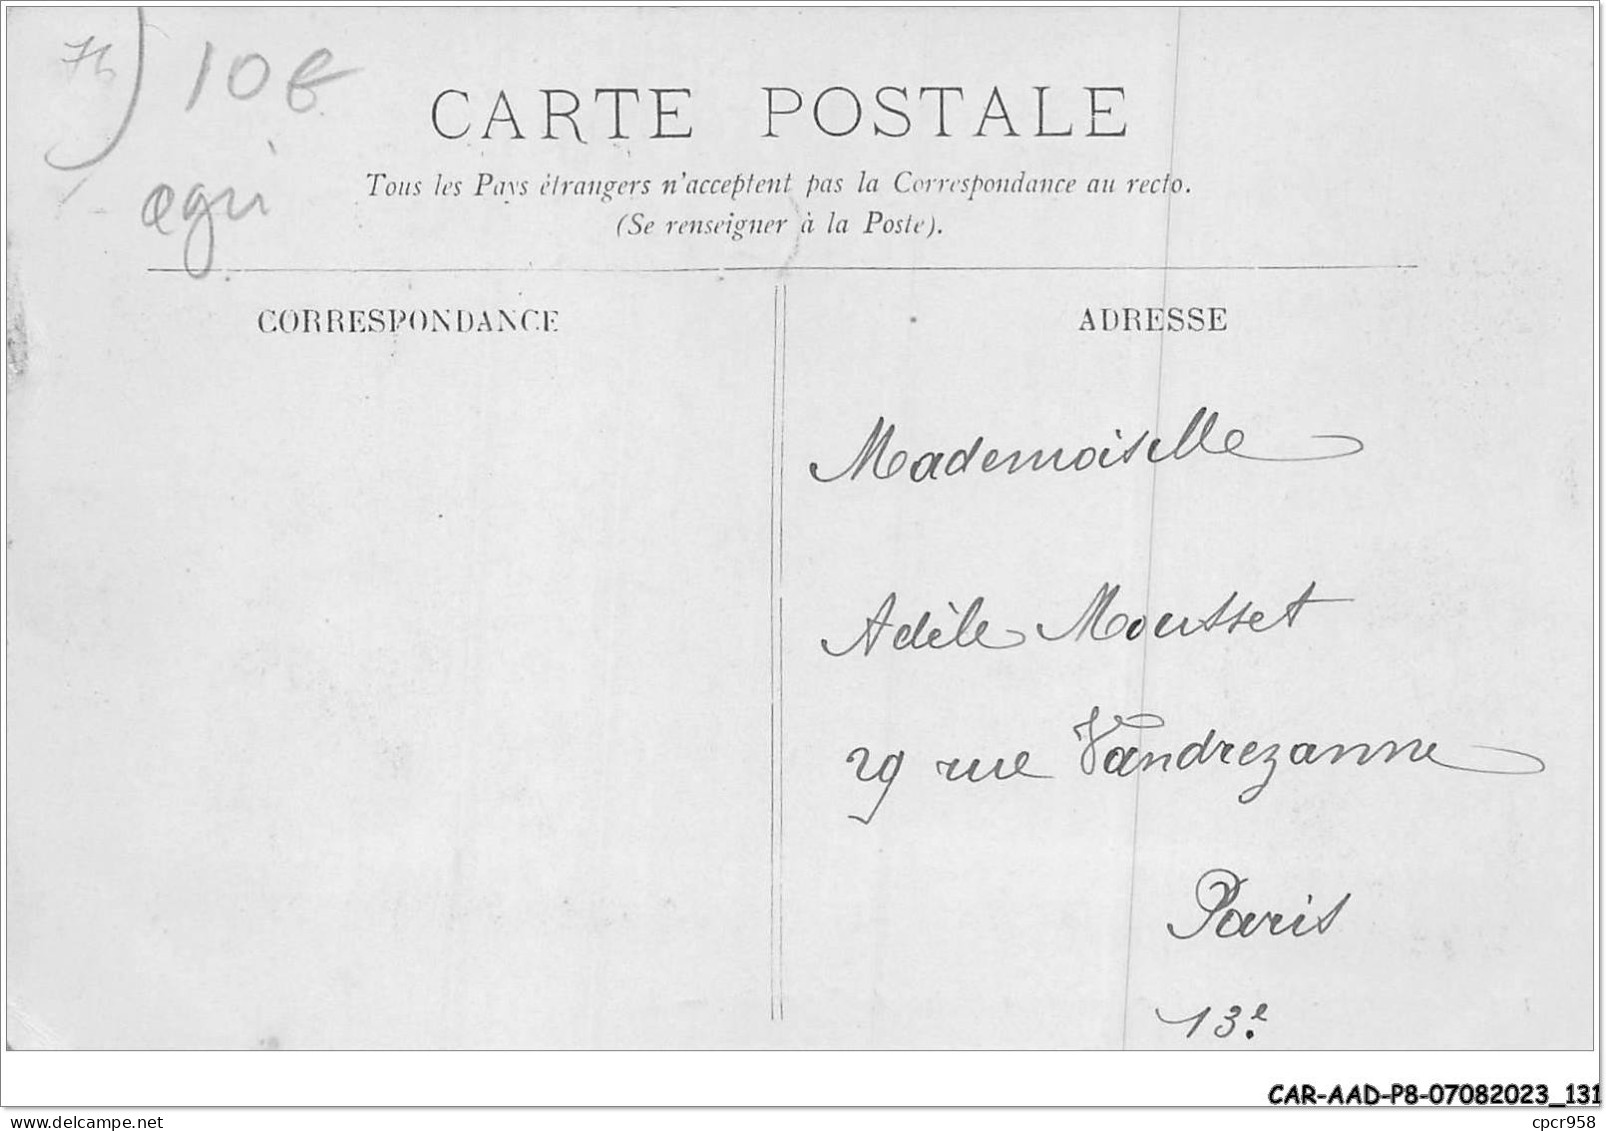 76
10 €
agri
CARTE POSTALE
Tous les Pays étrangers n'acceptent pas la Correspondance au recto.
(Se renseigner à la Poste).
CORRESPONDANCE
ADRESSE
Mademoiselle
Adèle Mousset
29 rue Vandrezanne
Paris
13e.
CAR-AAD-P8-07082023_131
www.delcampe.net
cpcr958